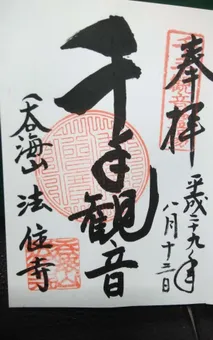 奉拝
平成二十九年
八月十三日
千手観音
吞海山 法住寺